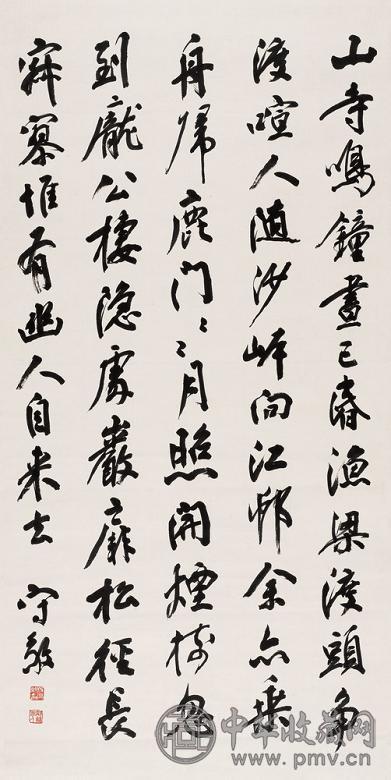 山寺鳴鐘晝已昏漁梁渡頭爭
渡喧人随沙岸向江邨余亦乘
舟歸鹿門〻〻月照開煙樹忽
到龐公棲隐處巖扉松徑長
寂寥惟有幽人自来去 守敬
中华收藏网
www.pmv.cn